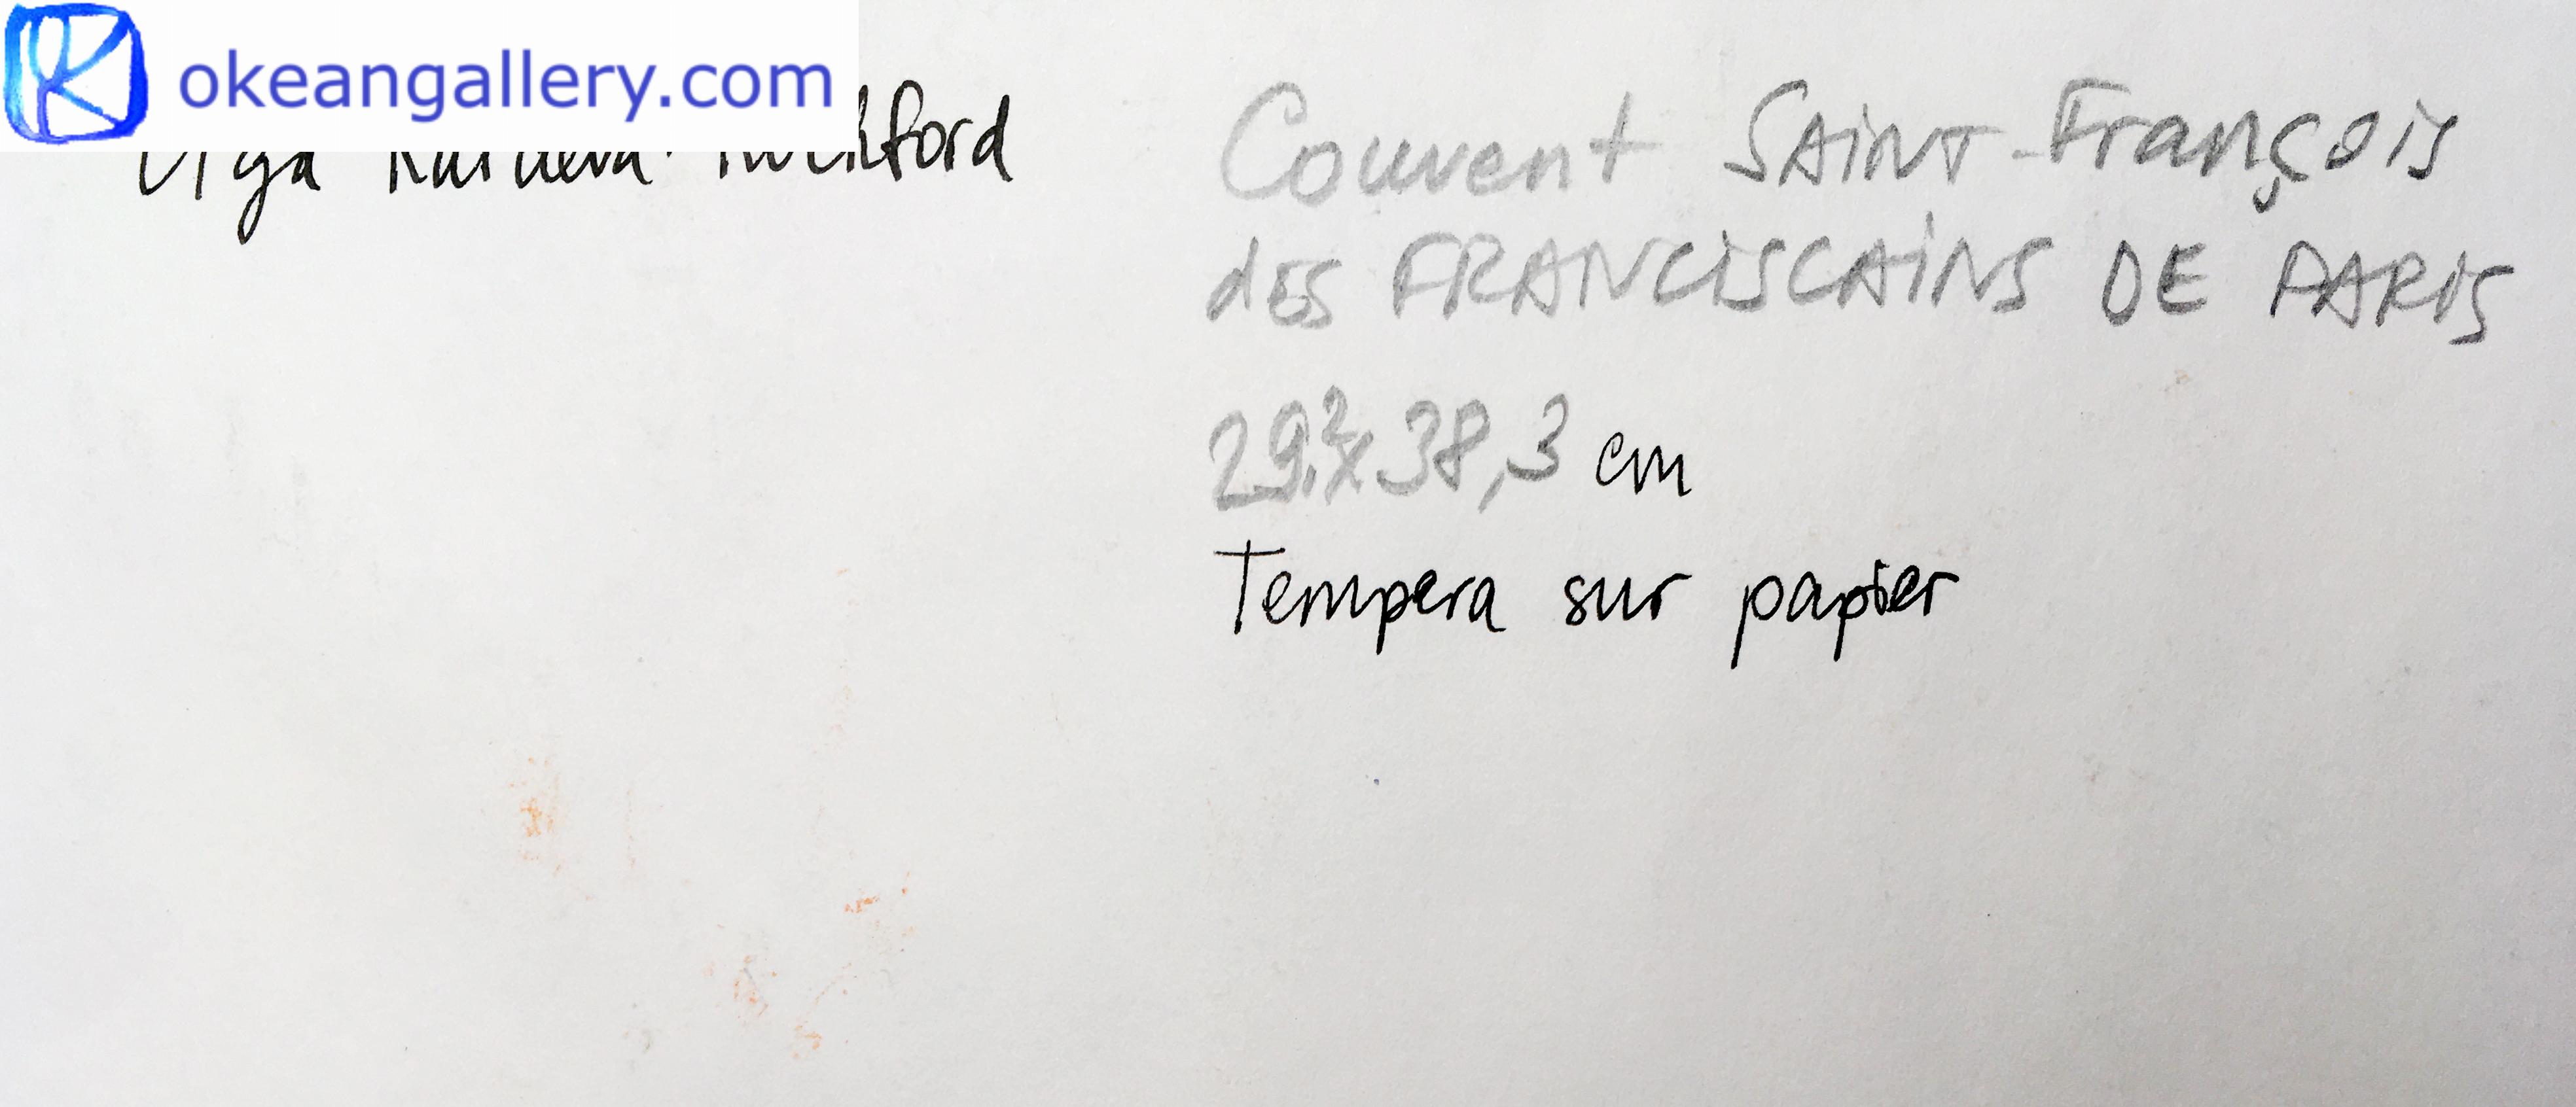 okeangallery.com
Olga
Couvent SAiNT-François
dES FRANCiSCAiNS DE PARiS
29,2x38,3 cm
Tempera sur papier